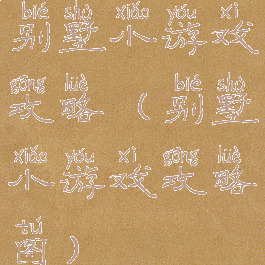 bié shù xiǎo yóu xì
别墅小游戏
gōng lüè bié shù
攻略(别墅
xiǎo yóu xì gōng lüè
小游戏攻略
tú
图)